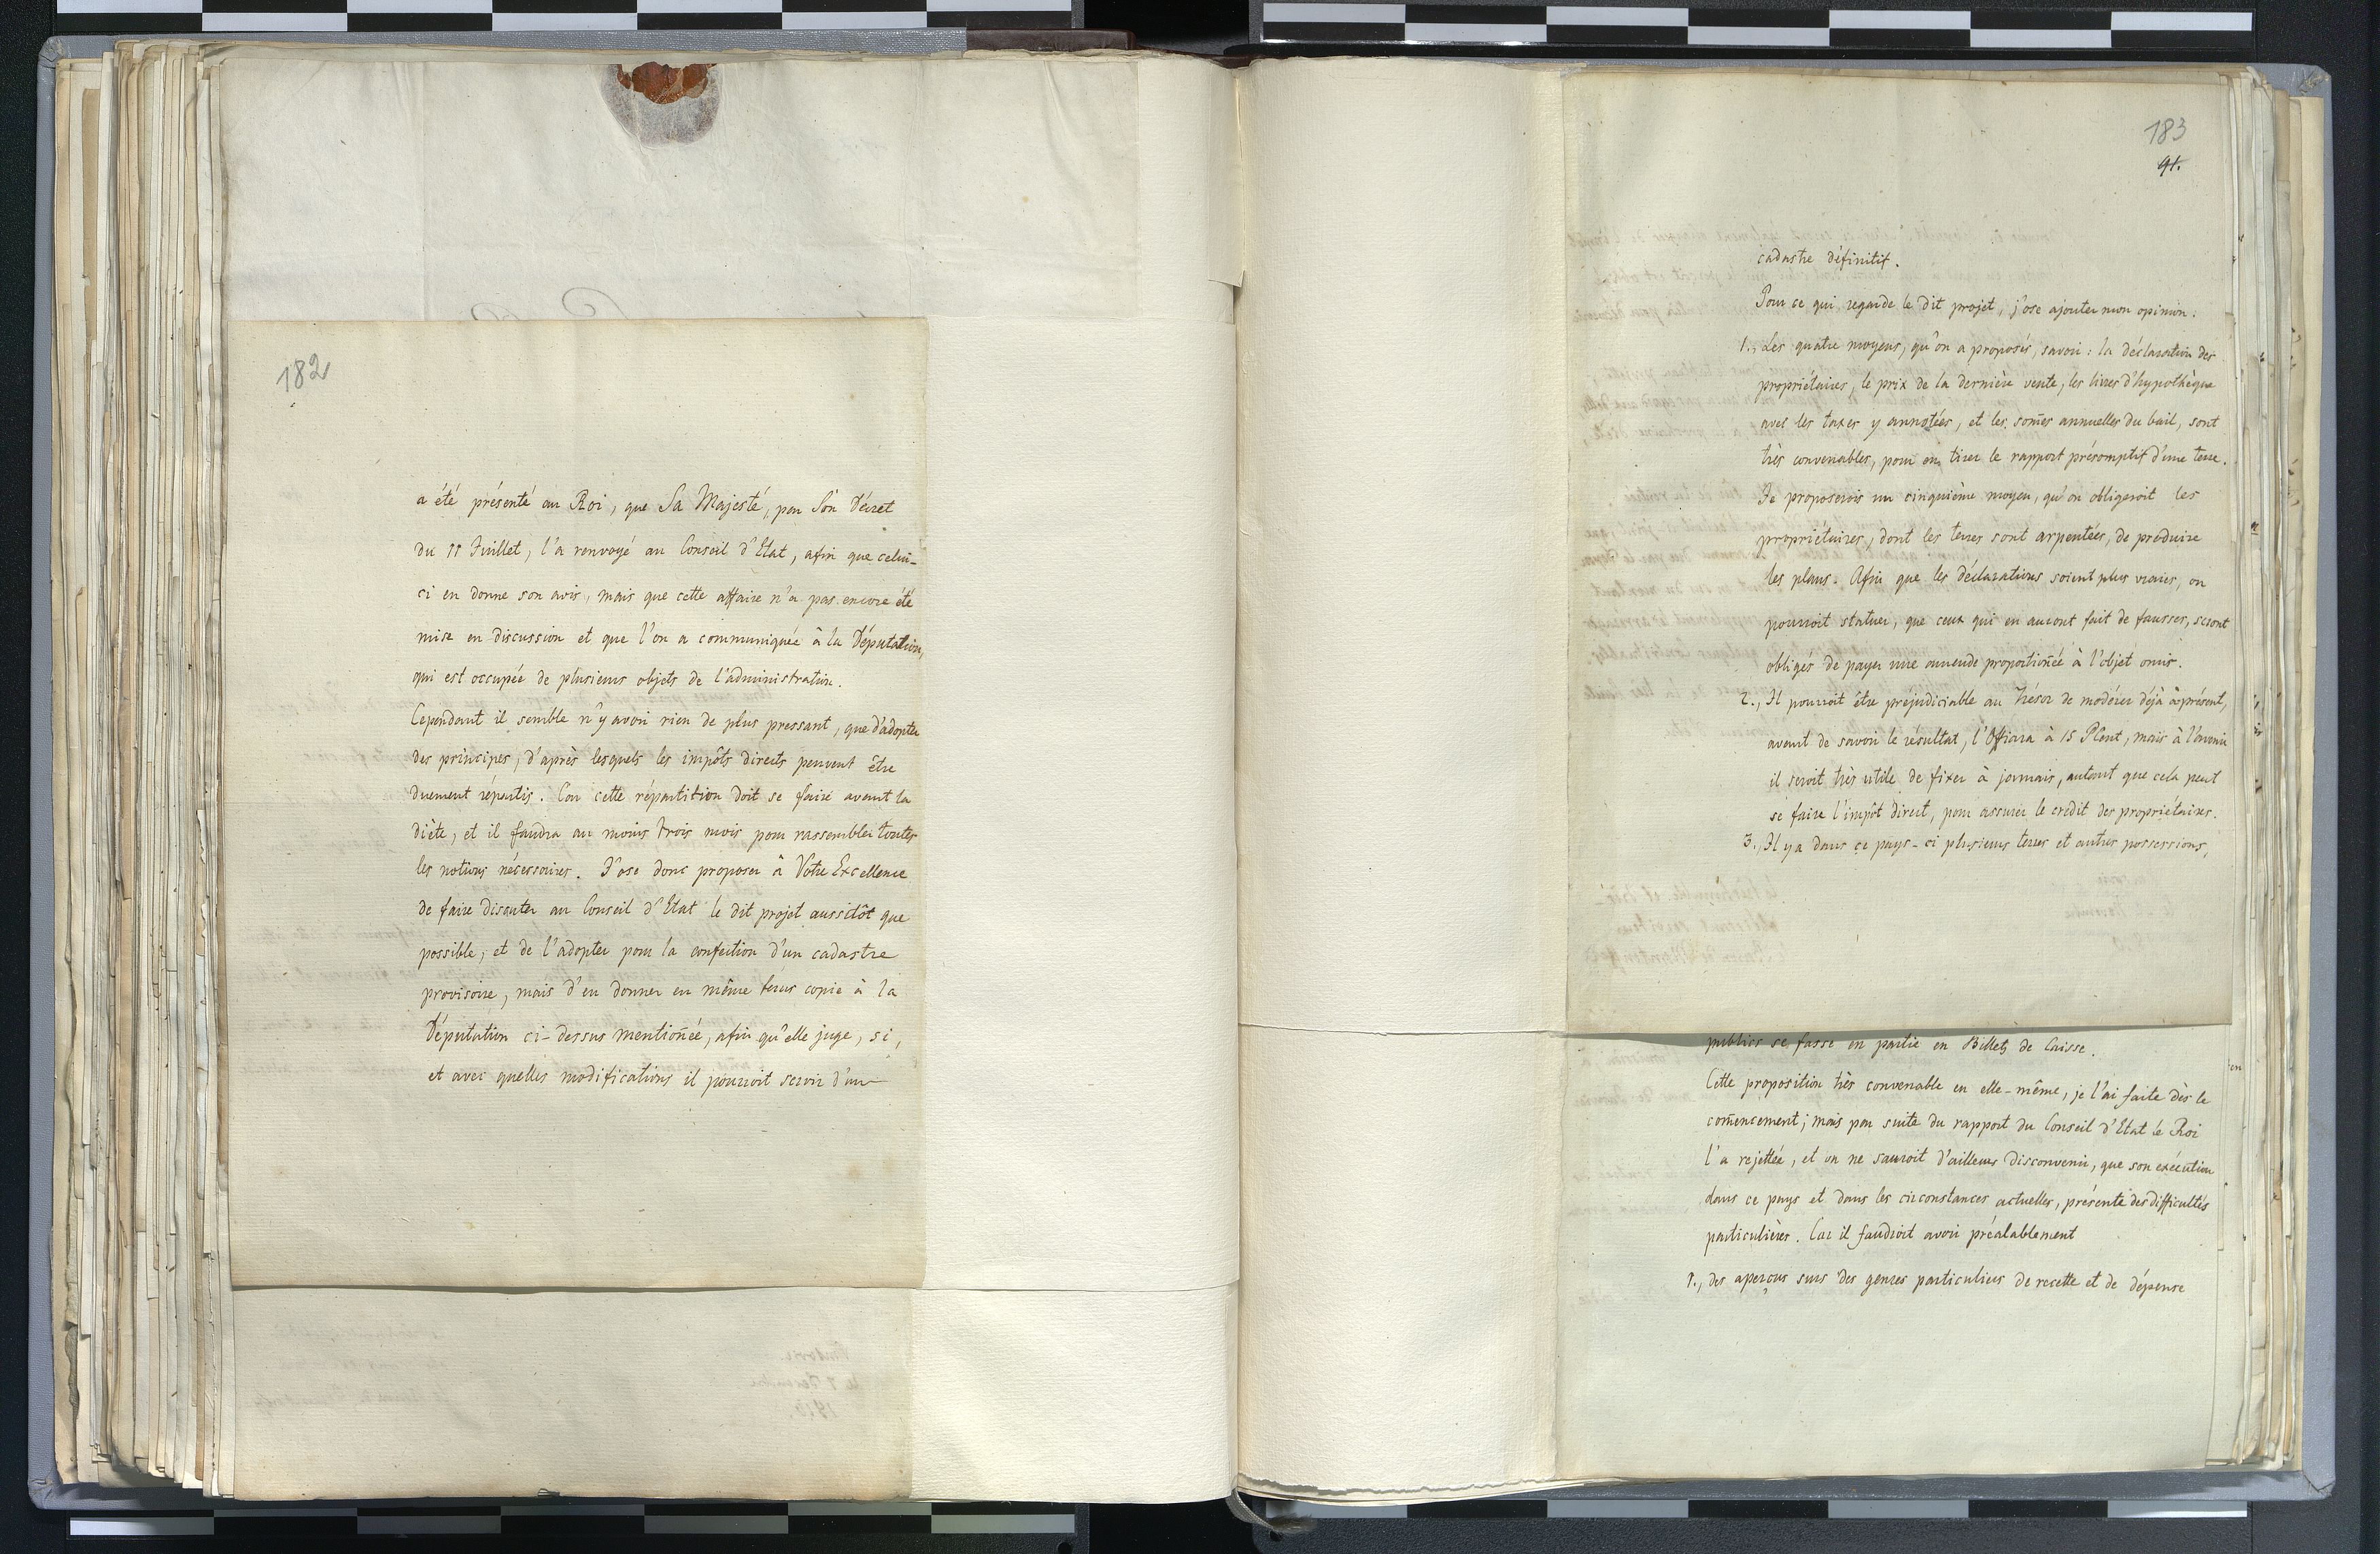 182
a été présenté au Roi, que Sa Majesté, par Son Décret
du 11 Juillet, l'a renvoyé au Conseil d'Etat, afin que celui-
ci en donne son avis, mais que cette affaire n'a pas encore été
mise en discussion et que l'on a communiquée à la Députation,
qui est occupée de plusieurs objets de l'administration.
Cependant il semble n'y avoir rien de plus pressant, que d'adopter
des principes, d'après lesquels les impôts directs peuvent être
duement répartis. Car cette répartition doit se faire avant la
diète, et il faudra au moins trois mois pour rassembler toutes
les notions nécessaires. J'ose donc proposer à Votre Excellence
de faire discuter au Conseil d'Etat le dit projet aussitôt que
possible, et de l'adopter pour la confection d'un cadastre
provisoire, mais d'en donner en même tems copie à la
Députation ci-dessus mention̄ée, afin qu'elle juge, si,
et avec quelles modifications il pourroit servir d'un
183
91.
cadastre définitif.
Pour ce qui regarde le dit projet, j'ose ajouter mon opinion:
1., Les quatre moyens, qu'on a proposés, savoir: la déclaration des
propriétaires, le prix de la dernière vente, les livres d'hypothèque
avec les taxes y annotées, et les som̄es annuelles du bail, sont
très convenables, pour en tirer le rapport présomptif d'une terre.
Je proposerois un cinquième moyen, qu'on obligeroit les
propriétaires, dont les terres sont arpentées, de produire
les plans. Afin que les déclarations soient plus vraies, on
pourroit statuer, que ceux qui en auront fait de fausses, seront
obligés de payer une amende proportion̄ée à l'objet omis.
2., Il pourroit être préjudiciable au Trésor de modérer déjà àprésent,
avant de savoir le résultat, l'Offiara à 15 PCent, mais à l'avenir
il seroit très utile de fixer à jamais, autant que cela peut
se faire l'impôt direct, pour assurer le crédit des propriétaires.
3., Il y a dans ce pays-ci plusieurs terres et autres possessions,
publics se fasse en partie en Billets de Caisse.
Cette proposition très convenable en elle-même, je l'ai faite dès le
com̄encement; mais par suite du rapport du Conseil d'Etat le Roi
l'a rejettée, et on ne sauroit d'ailleurs disconvenir, que son exécution
dans ce pays et dans les circonstances actuelles, présente des difficultés
particulières. Car il faudroit avoir préalablement
1., des aperçus surs des genres particuliers de recette et de dépense